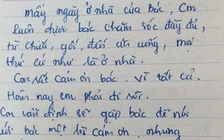 mấy ngày ở nhà của bác, con
luôn được bác chăm sóc đầy đủ,
từ chiếc gối, đến ăn uống, mọi
thứ cứ như là ở nhà.
Con rất cảm ơn bác. Vì tất cả.
Hôm nay con phải đi rồi.
Con rất định sẽ gặp bác để nói
với bác một lời cảm ơn, nhưng